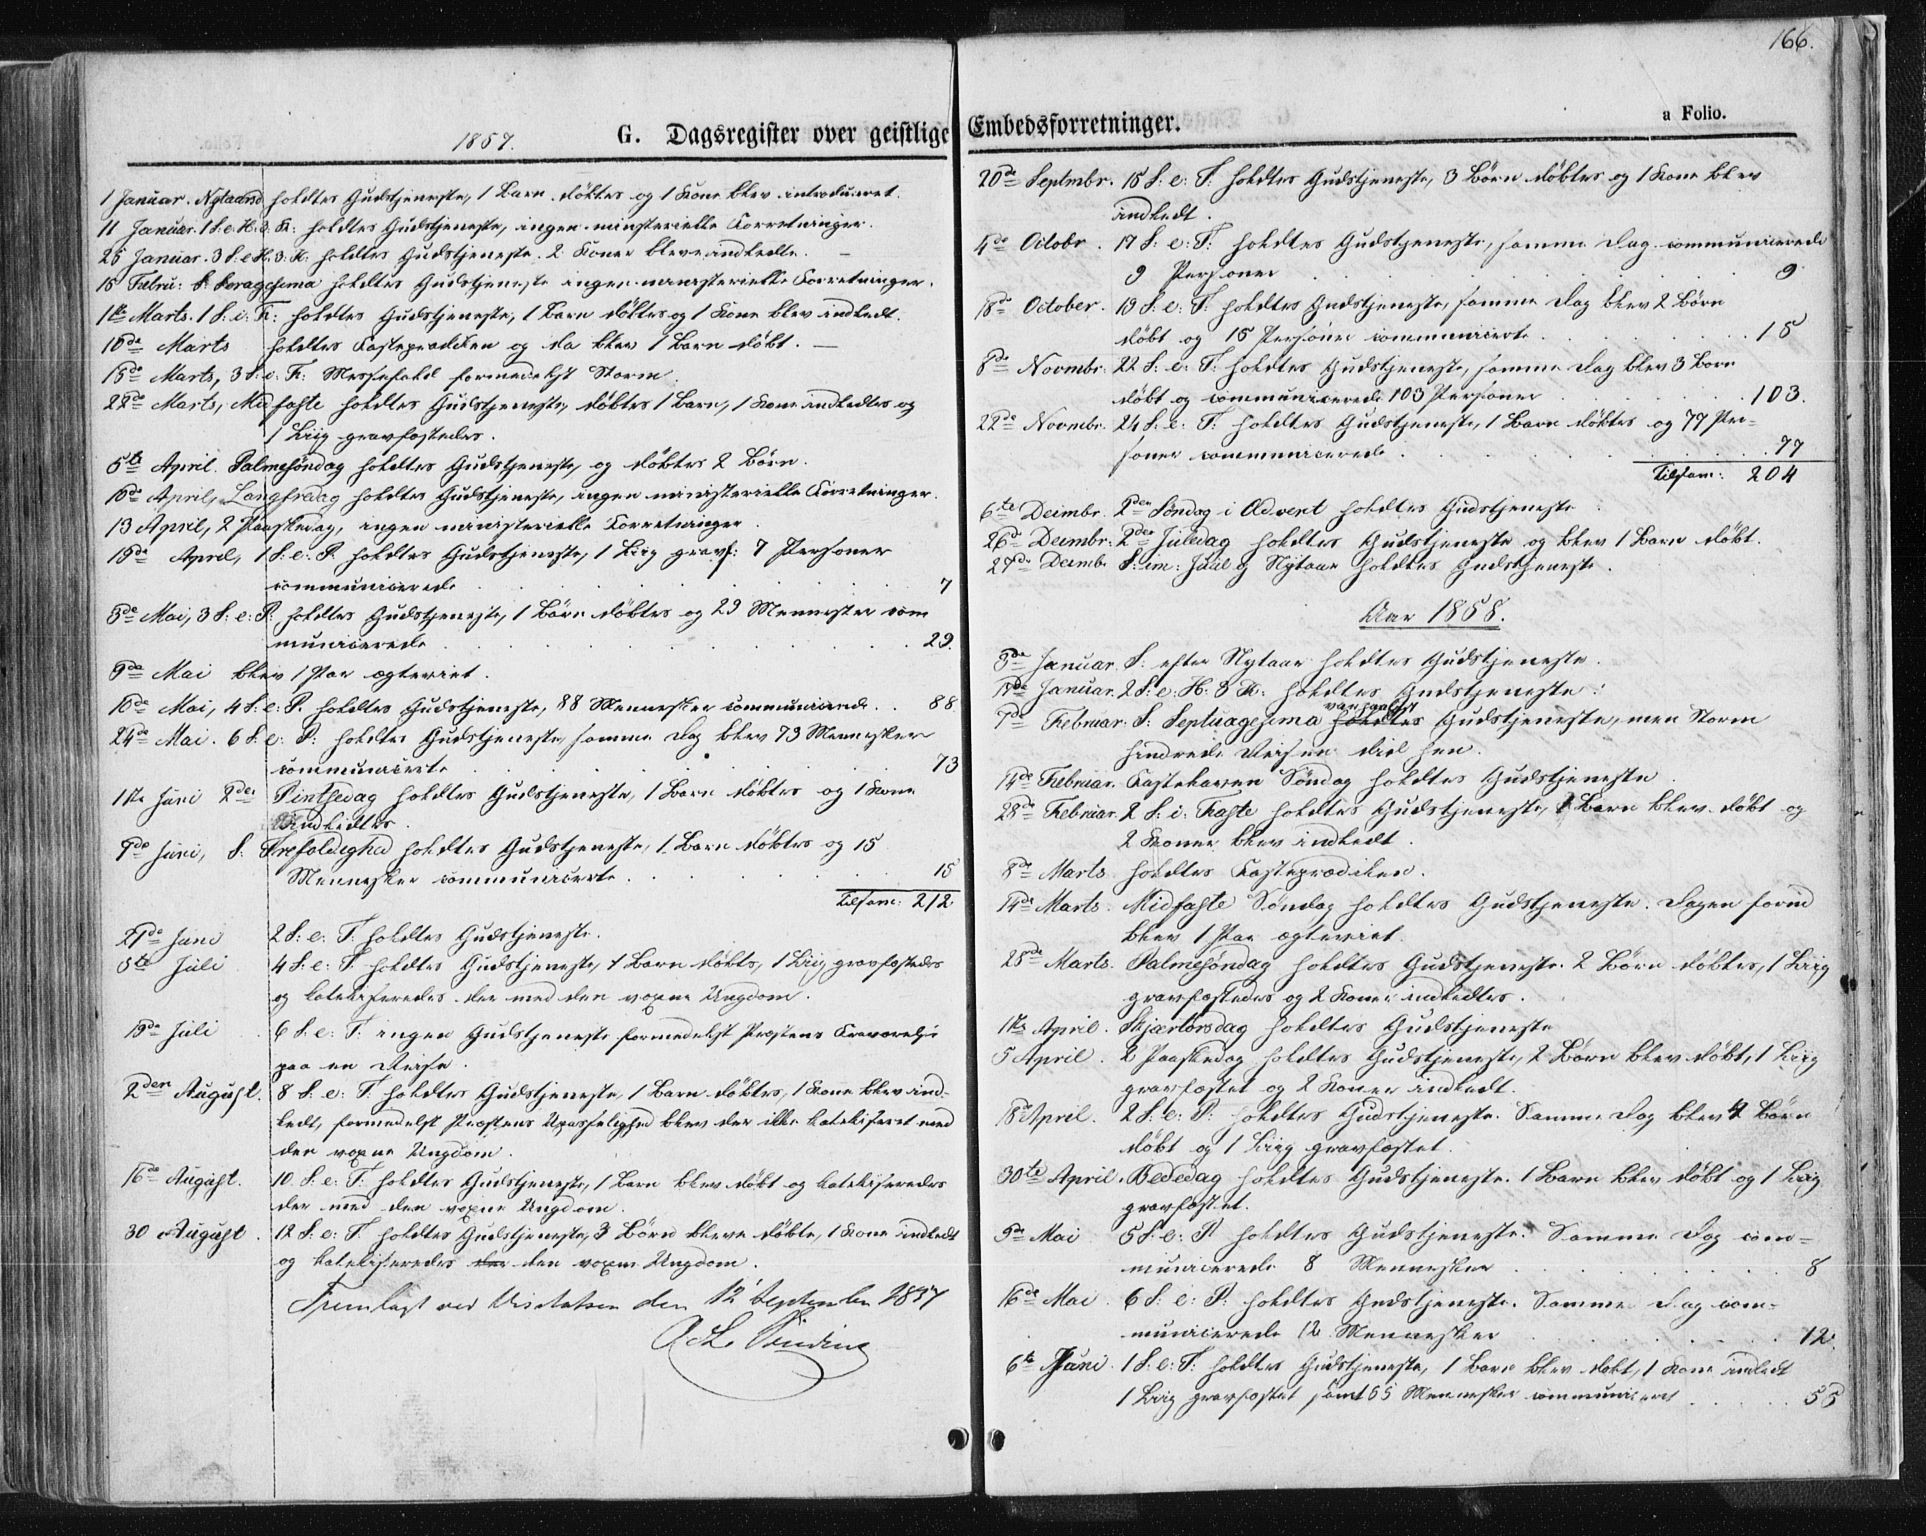 1857.
G. Dagsregister over geistlige
1 Januar. Nytaarsd holdtes Gudstjeneste, 1 Barn döbtes og 1 Kone blev introduceret.
11 Januar. 1 S. e. H. 3. K: holdtes Gudstjeneste, ingen ministerielle Forretninger.
25 Januar. 3 S. e. H. 3. K: holdtes Gudstjeneste. 2 Koner bleve indledte.
15 Febru: S. Seragesima holdtes Gudstjeneste ingen ministerielle Forretninger.
1ste Marts. 1 S: i: F: holdtes Gudstjeneste, 1 Barn döbtes og 1 Kone blev indledt.
10de Marts holdtes Fasteprædiken og da blev 1 Barn döbt.
15de Marts, 3 S: i: F: Messefald formedelst Storm.
22de Marts, Midfaste holdtes Gudstjeneste, döbtes 1 Barn, 1 Kone indledtes og
1 Liig gravfæstedes.
5te April. Palmesöndag holdtes Gudstjeneste, og döbtes 2 Börn.
10de April, Langfredag holdtes Gudstjeneste, ingen ministerielle Forretninger.
13 April, 2 Paaskedag, ingen ministerielle Forretninger.
19de April, 1 S: e: P. holdtes Gudstjeneste, 1 Liig gravf: 7 Personer
communicerede . . . 7
3de Mai, 3 S: e: P: holdtes Gudstjeneste, 1 Barn döbtes og 29 Mennesker com
municerede . . . 29.
9de Mai blev 1 Par ægteviet.
10de Mai, 4 S: e: P. holdtes Gudstjeneste, 88 Mennesker communicerede . . 88
24de Mai. 6 S: e: P: holdtes Gudstjeneste, samme Dag blev 73 Mennesker
communicerte . . . 73
1ste Juni 2den Pintsedag holdtes Gudstjeneste, 1 Barn döbtes og 1 Kone
indledtes.
7de Juni, S. Trefoldighed holdtes Gudstjeneste, 1 Barn döbtes og 15
Mennesker communicerte . . . 15
Tilsam: 212
21de Juni 2 S: e: T: holdtes Gudstjeneste.
5te Juli 4 S: e: T. holdtes Gudstjeneste, 1 Barn döbts, 1 Liig gravfæstedes
og katekiseredes der med den voxne Ungdom.
19de Juli 6 S. e: T: ingen Gudstjeneste formedelst Præstens Fraværelse
paa en Reise.
2den August. 8 S. e: T. holdtes Gudstjeneste, 1 Barn döbtes, 1 Kone blev ind-
ledt, formedelst Præstens Upasselighed blev der ikke katekiseret med
den voxne Ungdom.
16de August. 10. S: e: T: holdtes Gudstjeneste, 1 Barn blev döbt og katekiseredes
der med den voxne Ungdom.
30 August. 12 S: e: T. holdtes Gudstjeneste, 3 Börn bleve döbte, 1 Kone indledt
og katekiseredes der den voxne Ungdom.
Fremlagt ved Visitatsen den 12 September 1857
166.
Embedsforretninger.
a Folio.
20de Septmbr. 15 S: e: T. holdtes Gudstjeneste, 3 Börn döbtes og 1 Kone blev
indledt.
4de Octobr. 17 S: e: T: holdtes Gudstjeneste, samme Dag communicerede
9 Personer . . . 9
18de October. 19 S: e: T. holdtes Gudstjeneste, samme Dag blev 2 Börn
döbt og 15 Personer communicerte . . . 15
8de Novmbr. 22 S. e: T. holdtes Gudstjeneste, samme Dag blev 3 Börn
döbt og communicerede 103 Personer . . . 103.
22de Novmbr. 24 S: e: T: holdtes Gudstjeneste, 1 Barn döbtes og 77 Per-
soner communicerede . . . 77
Tilsam: 204
6te Decmbr. 2den Söndag i Advent holdtes Gudstjeneste.
26de Decmbr: 2den Juledag holdtes Gudstjeneste og blev 1 Barn döbt.
27de Decmbr. S: im: Juul og Nytaar holdtes Gudstjeneste.
Aar 1858.
3de Januar. S: efter Nytaar holdtes Gudstjeneste.
17de Januar. 2 S: e: H: 3 K: holdtes Gudstjeneste.
7de Februar. S: Septuagesima holdtes Gudstjeneste, men Storm
hindrede Reisen did hen.
14de Februar. Fastelaven Söndag holdtes Gudstjeneste.
28de Februar. 2 S: i: Faste holdtes Gudstjeneste, 1 Barn blev döbt og
2 Koner blev indledt.
8de Marts holdtes Fasteprædiken.
14de Marts. Midfaste Söndag holdtes Gudstjeneste. Dagen forud
blev 1 Par ægteviet.
28de Marts. Palmesöndag holdtes Gudstjeneste. 2 Börn döbtes, 1 Liig
gravfæstedes og 2 Koner indledtes.
1ste April. Skjærtorsdag holdtes Gudstjeneste
5 April. 2 Paaskedag holdtes Gudstjeneste, 2 Börn blev döbt, 1 Liig
gravfæstet og 2 Koner indledt.
18de April. 2 S: e: P: holdtes Gudstjeneste. Samme Dag blev 4 Börn
döbt og 1 Liig gravfæstet.
30te April. Bededag holdtes Gudstjeneste. 1 Barn blev döbt og 1 Liig
gravfæstet.
9de Mai 5 S: e: P. holdtes Gudstjeneste. Samme Dag com-
municerede 8 Mennesker . . . 8
16de Mai. 6 S: e: P: holdtes Gudstjeneste. Samme Dag com-
municerede 12 Mennesker . . . 12.
6te Juni. 1 S: e: T: holdtes Gudstjeneste, 1 Barn blev döbt, 1 Kone indledt
1 Liig gravfæstet samt 55 Mennesker communiceret . . . 55